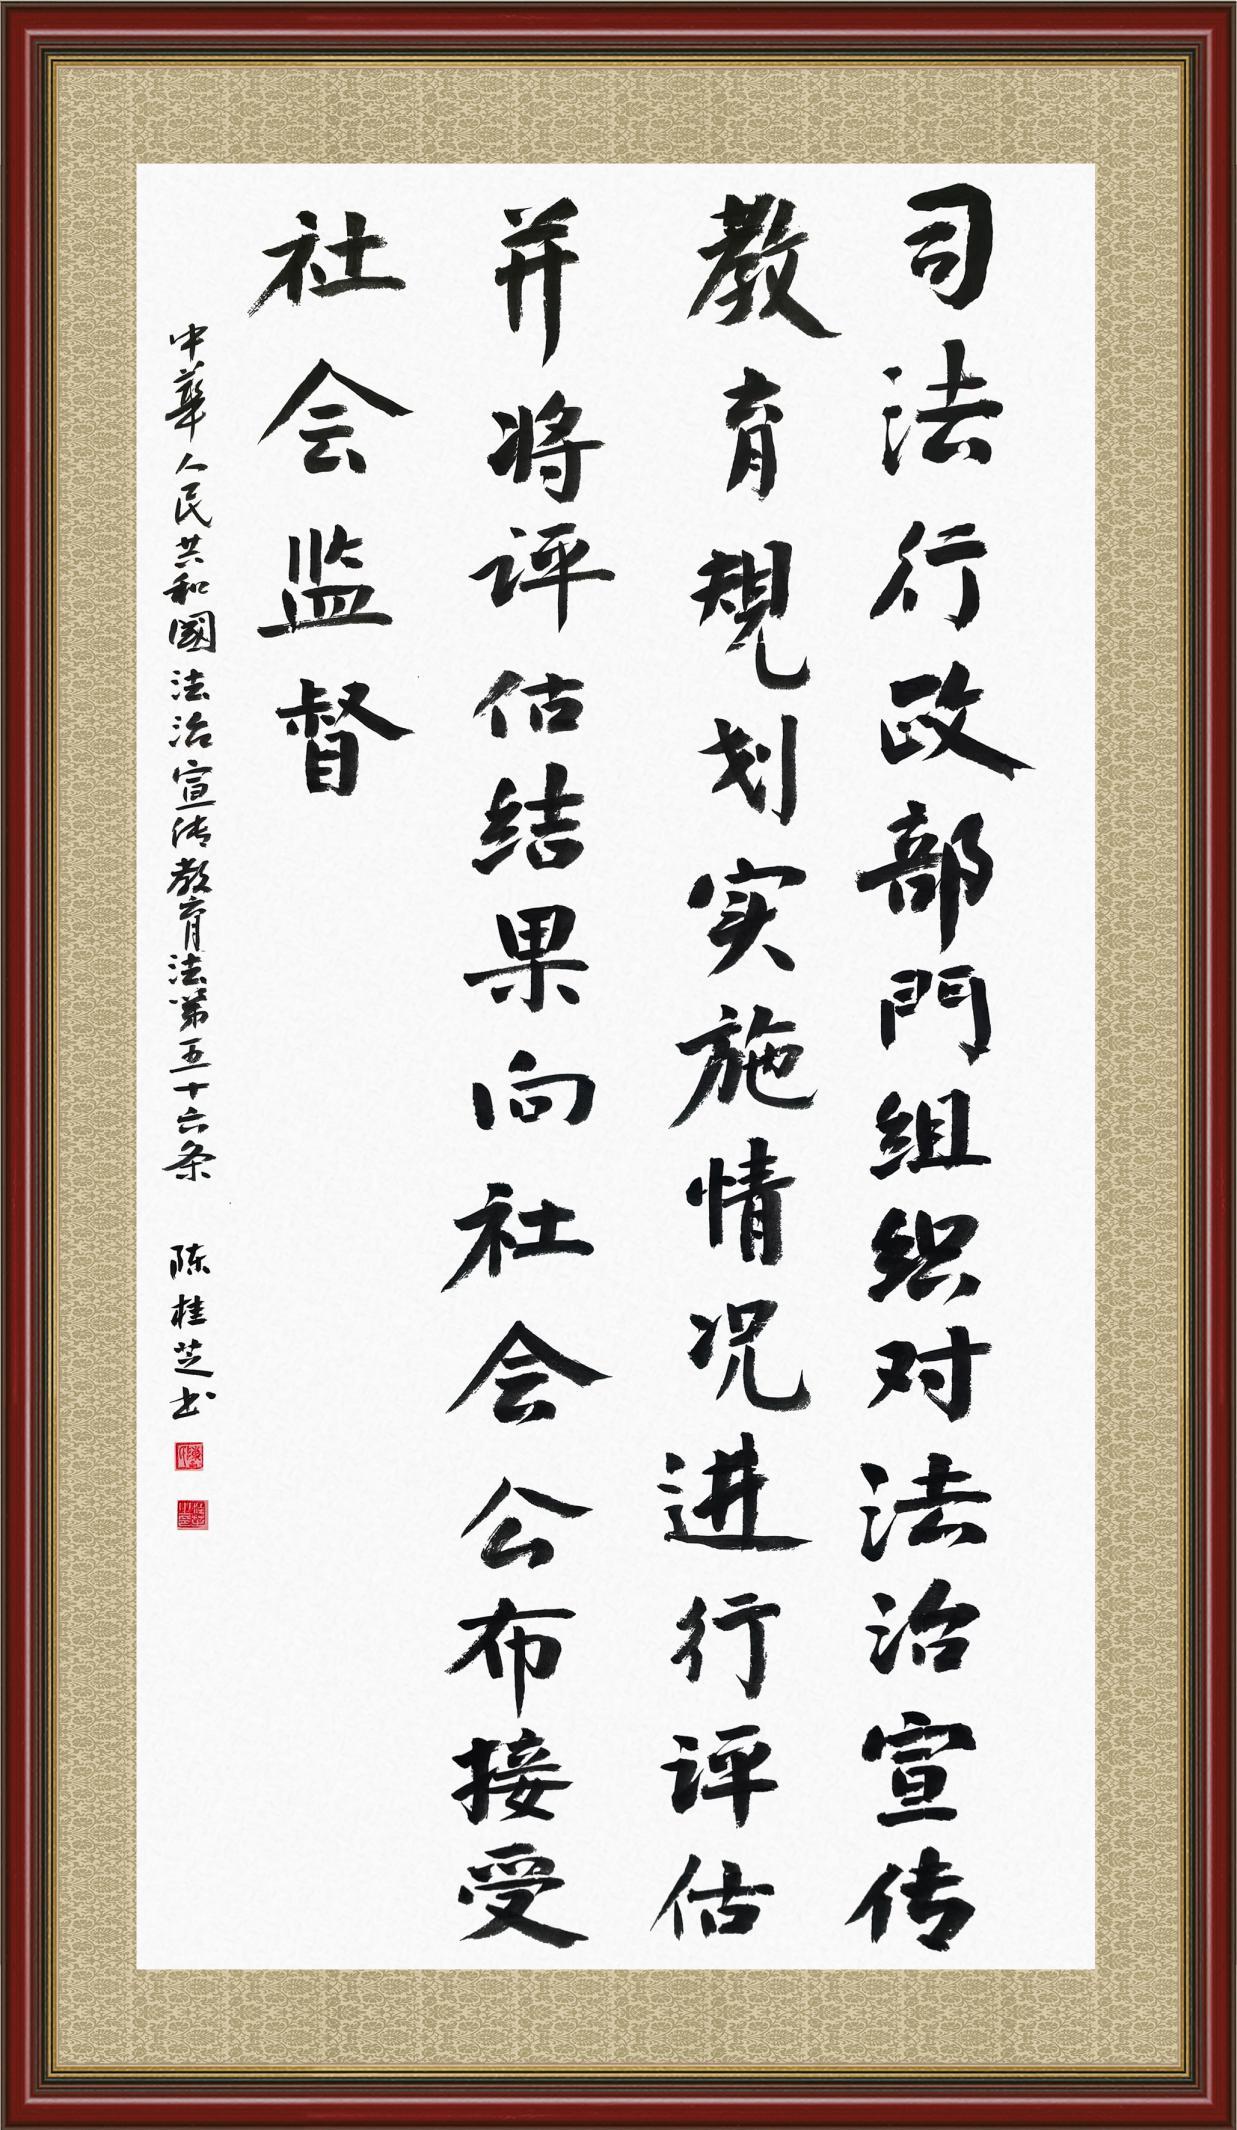 司法行政部門组织对法治宣传
教育規划实施情况进行评估
并将评估结果向社会公布接受
社会监督
中華人民共和國法治宣传教育法第五十六条 陈桂芝书